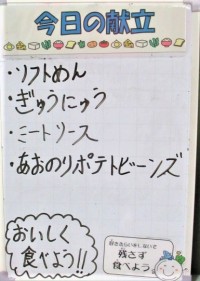 今日の献立
・ソフトめん
・ぎゅうにゅう
・ミートソース
・あおのりポテトビーンズ
おいしく
食べよう!!
好ききらいをしないで
残さず
食べよう